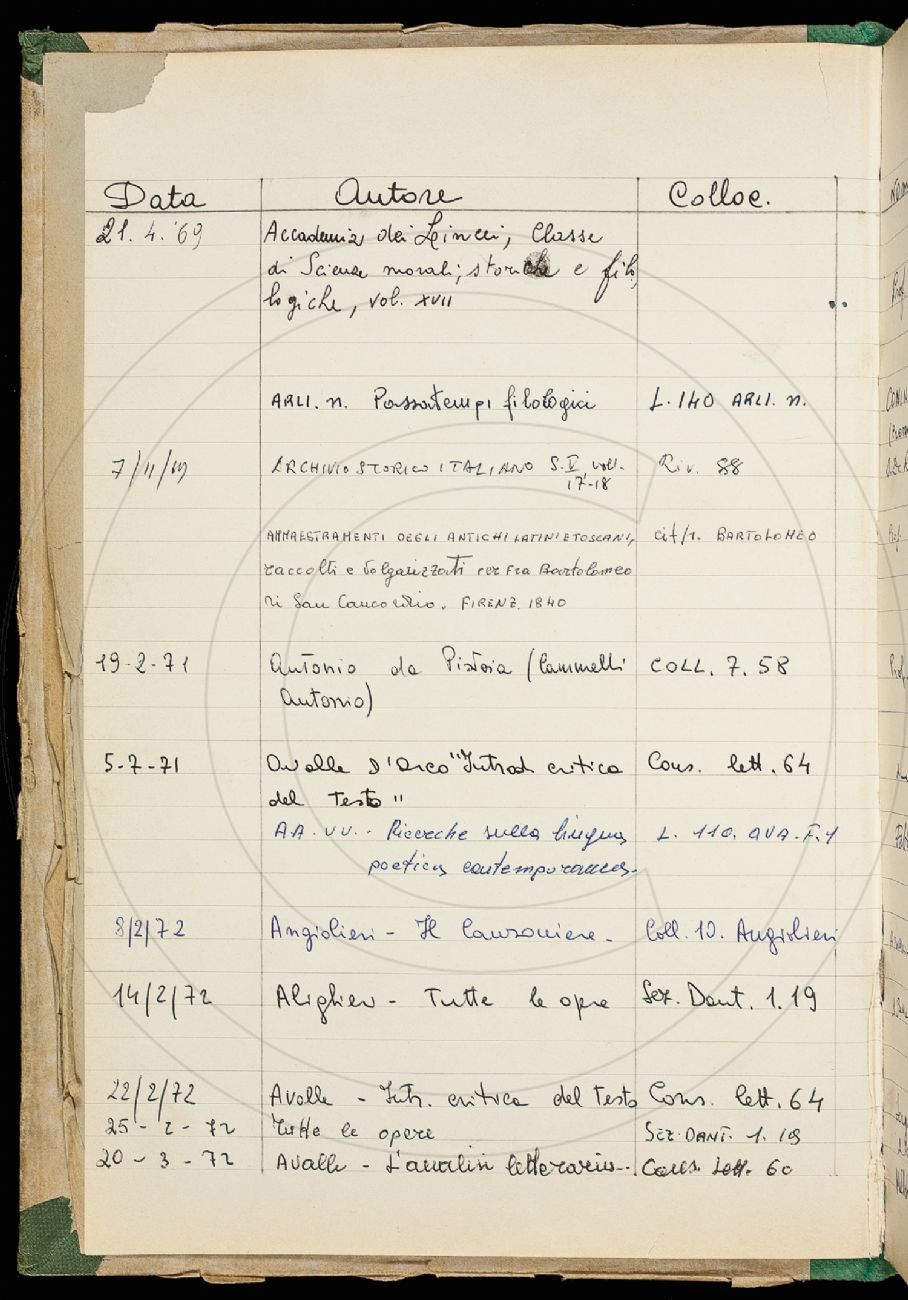 Data Autore Colloc.
21. 4. '69 Accademia dei Lincei, Classe
di Scienze morali, storiche e filo
logiche, vol. XVII
ARLI. n. Passatempi filologici L. 140 ARLI. n.
7/11/69 ARCHIVIO STORICO ITALIANO S. V, voll. Riv. 88
17-18
AMMAESTRAMENTI DEGLI ANTICHI LATINI E TOSCANI, cit/1. BARTOLOMEO
raccolti e volgarizzati per Fra Bartolomeo
di San Concordio. FIRENZ. 1840
19-2-71 Antonio da Pistoia (Cammelli COLL. 7. 58
Antonio)
5-7-71 Avalle D'Arco "Introd. critica Cons. lett. 64
del Testo"
AA.VV. - Ricerche sulla lingua L. 110. AVA. F. 1
poetica contemporanea.
8/2/72 Angiolieri - Il Canzoniere. Coll. 10. Angiolieri
14/2/72 Alighieri - Tutte le opere Sez. Dant. 1.19
22/2/72 Avalle - Intr. critica del Testo Cons. lett. 64
25-2-72 Tutte le opere SEZ. DANT. 1. 19
20-3-72 Avalle - L'analisi letteraria... Cons. Lett. 60